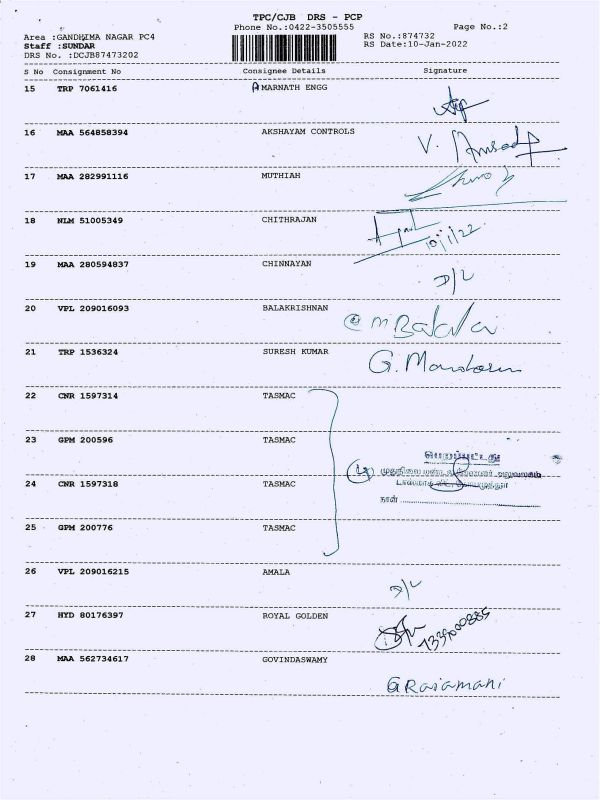 TPC/CJB DRS - PCP
Phone No.:0422-3505555 Page No.:2
Area :GANDHIMA NAGAR PC4 RS No.:874732
Staff :SUNDAR RS Date:10-Jan-2022
DRS No. :DCJB87473202
S No Consignment No Consignee Details Signature
15 TRP 7061416 AMARNATH ENGG
16 MAA 564858394 AKSHAYAM CONTROLS
V.
17 MAA 282991116 MUTHIAH
18 NLM 51005349 CHITHRAJAN
10/1/22
19 MAA 280594837 CHINNAYAN
D/L
20 VPL 209016093 BALAKRISHNAN
21 TRP 1536324 SURESH KUMAR
22 CNR 1597314 TASMAC
23 GPM 200596 TASMAC
24 CNR 1597318 TASMAC
நாள்
25 GPM 200776 TASMAC
26 VPL 209016215 AMALA
D/L
27 HYD 80176397 ROYAL GOLDEN
28 MAA 562734617 GOVINDASWAMY
G Rajamani